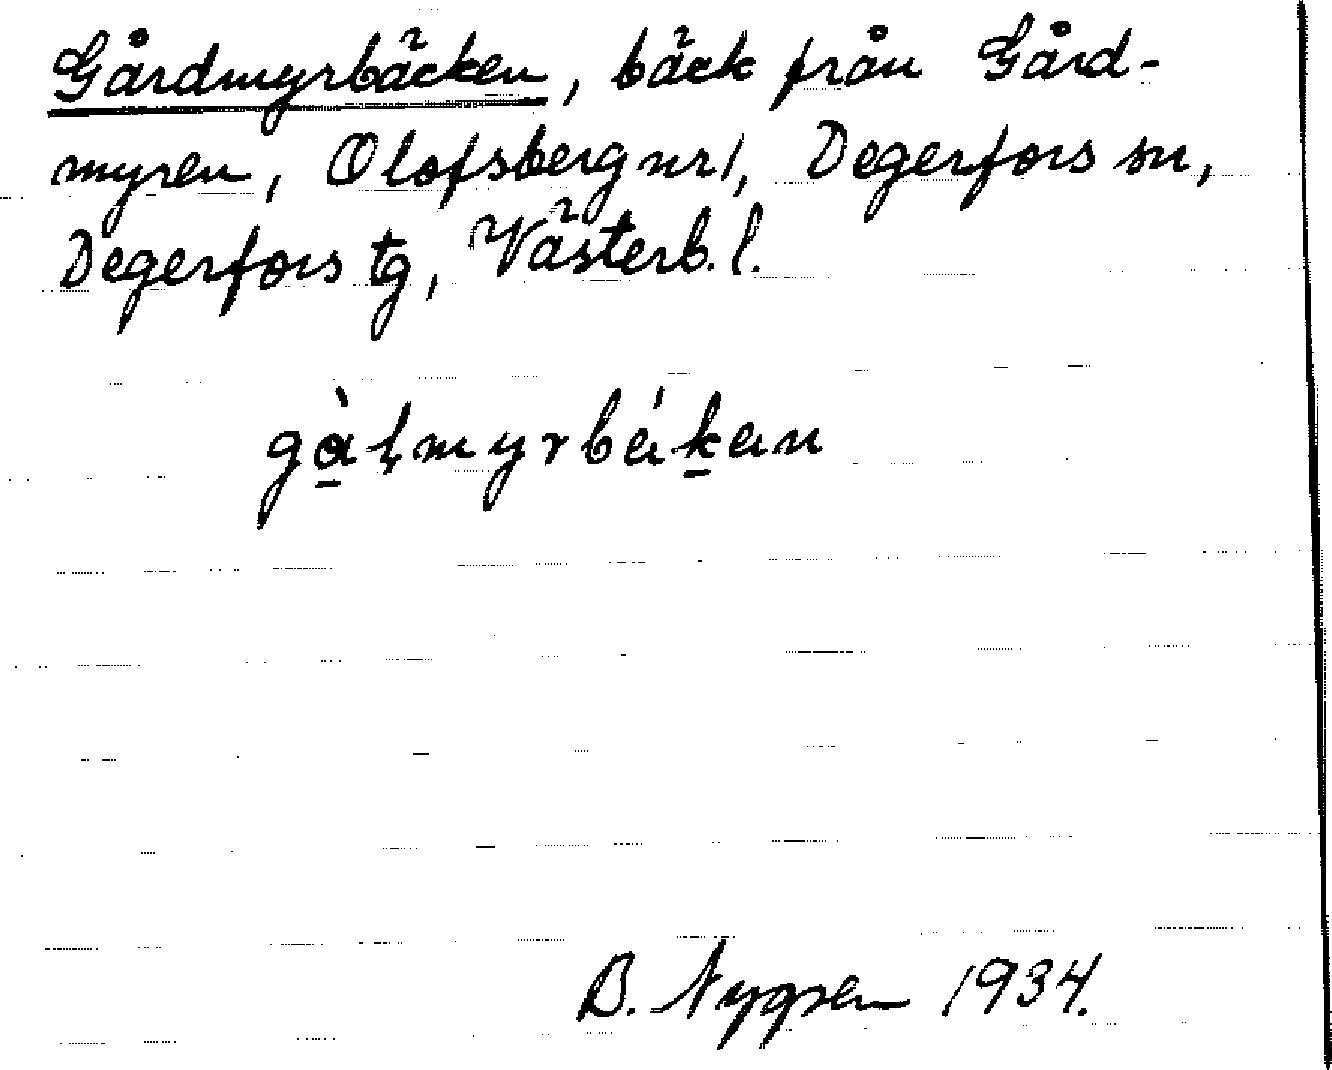 Gårdmyrbäcken, bäck från Gård-
myren, Olofsberg nr 1, Degerfors sn,
Degerfors tg, Västerb. l.
B. Nygren 1934.